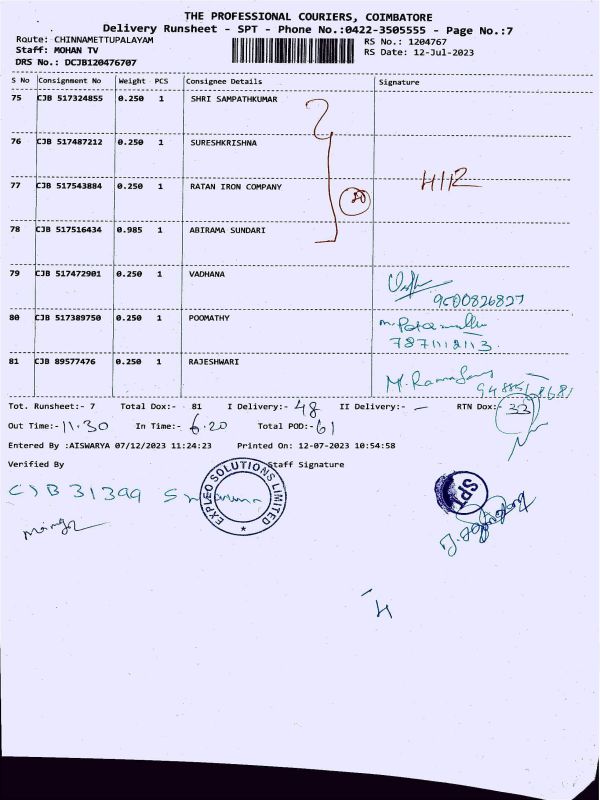 THE PROFESSIONAL COURIERS, COIMBATORE
Delivery Runsheet - SPT - Phone No.:0422-3505555 - Page No.:7
Route: CHINNAMETTUPALAYAM
RS No.: 1204767
Staff: MOHAN TV
RS Date: 12-Jul-2023
DRS No.: DCJB120476707
S No Consignment No Weight PCS Consignee Details Signature
75 CJB 517324855 0.250 1 SHRI SAMPATHKUMAR
76 CJB 517487212 0.250 1 SURESHKRISHNA
77 CJB 517543884 0.250 1 RATAN IRON COMPANY
20
78 CJB 517516434 0.985 1 ABIRAMA SUNDARI
79 CJB 517472901 0.250 1 VADHANA
9600826827
80 CJB 517389750 0.250 1 POOMATHY
81 CJB 89577476 0.250 1 RAJESHWARI
Tot. Runsheet:- 7 Total Dox:- 81 I Delivery:- 48 II Delivery:- — RTN Dox:- 33
Out Time:- 11.30 In Time:- 6.20 Total POD:- 61
Entered By :AISWARYA 07/12/2023 11:24:23 Printed On: 12-07-2023 10:54:58
Verified By Staff Signature
CJB 31399
EXPLEO SOLUTIONS LIMITED
SPT